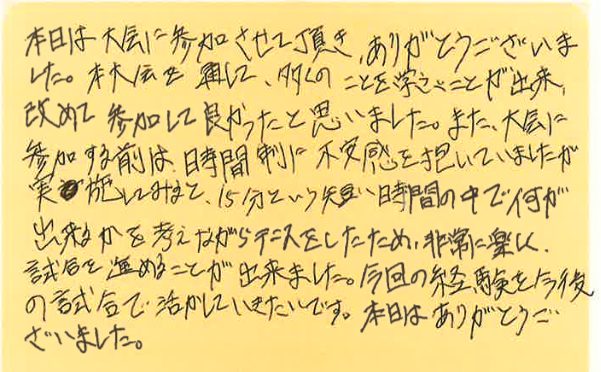 本日は大会に参加させて頂き、ありがとうございま
した。本大会を通して、多くのことを学ぶことが出来、
改めて参加して良かったと思いました。また、大会に
参加する前は、時間制に不安感を抱いていましたが
実施してみると、15分という短い時間の中で何が
出来るかを考えながらテニスをしたため、非常に楽しく
試合を進めることが出来ました。今回の経験を今後
の試合で活かしていきたいです。本日はありがとうご
ざいました。